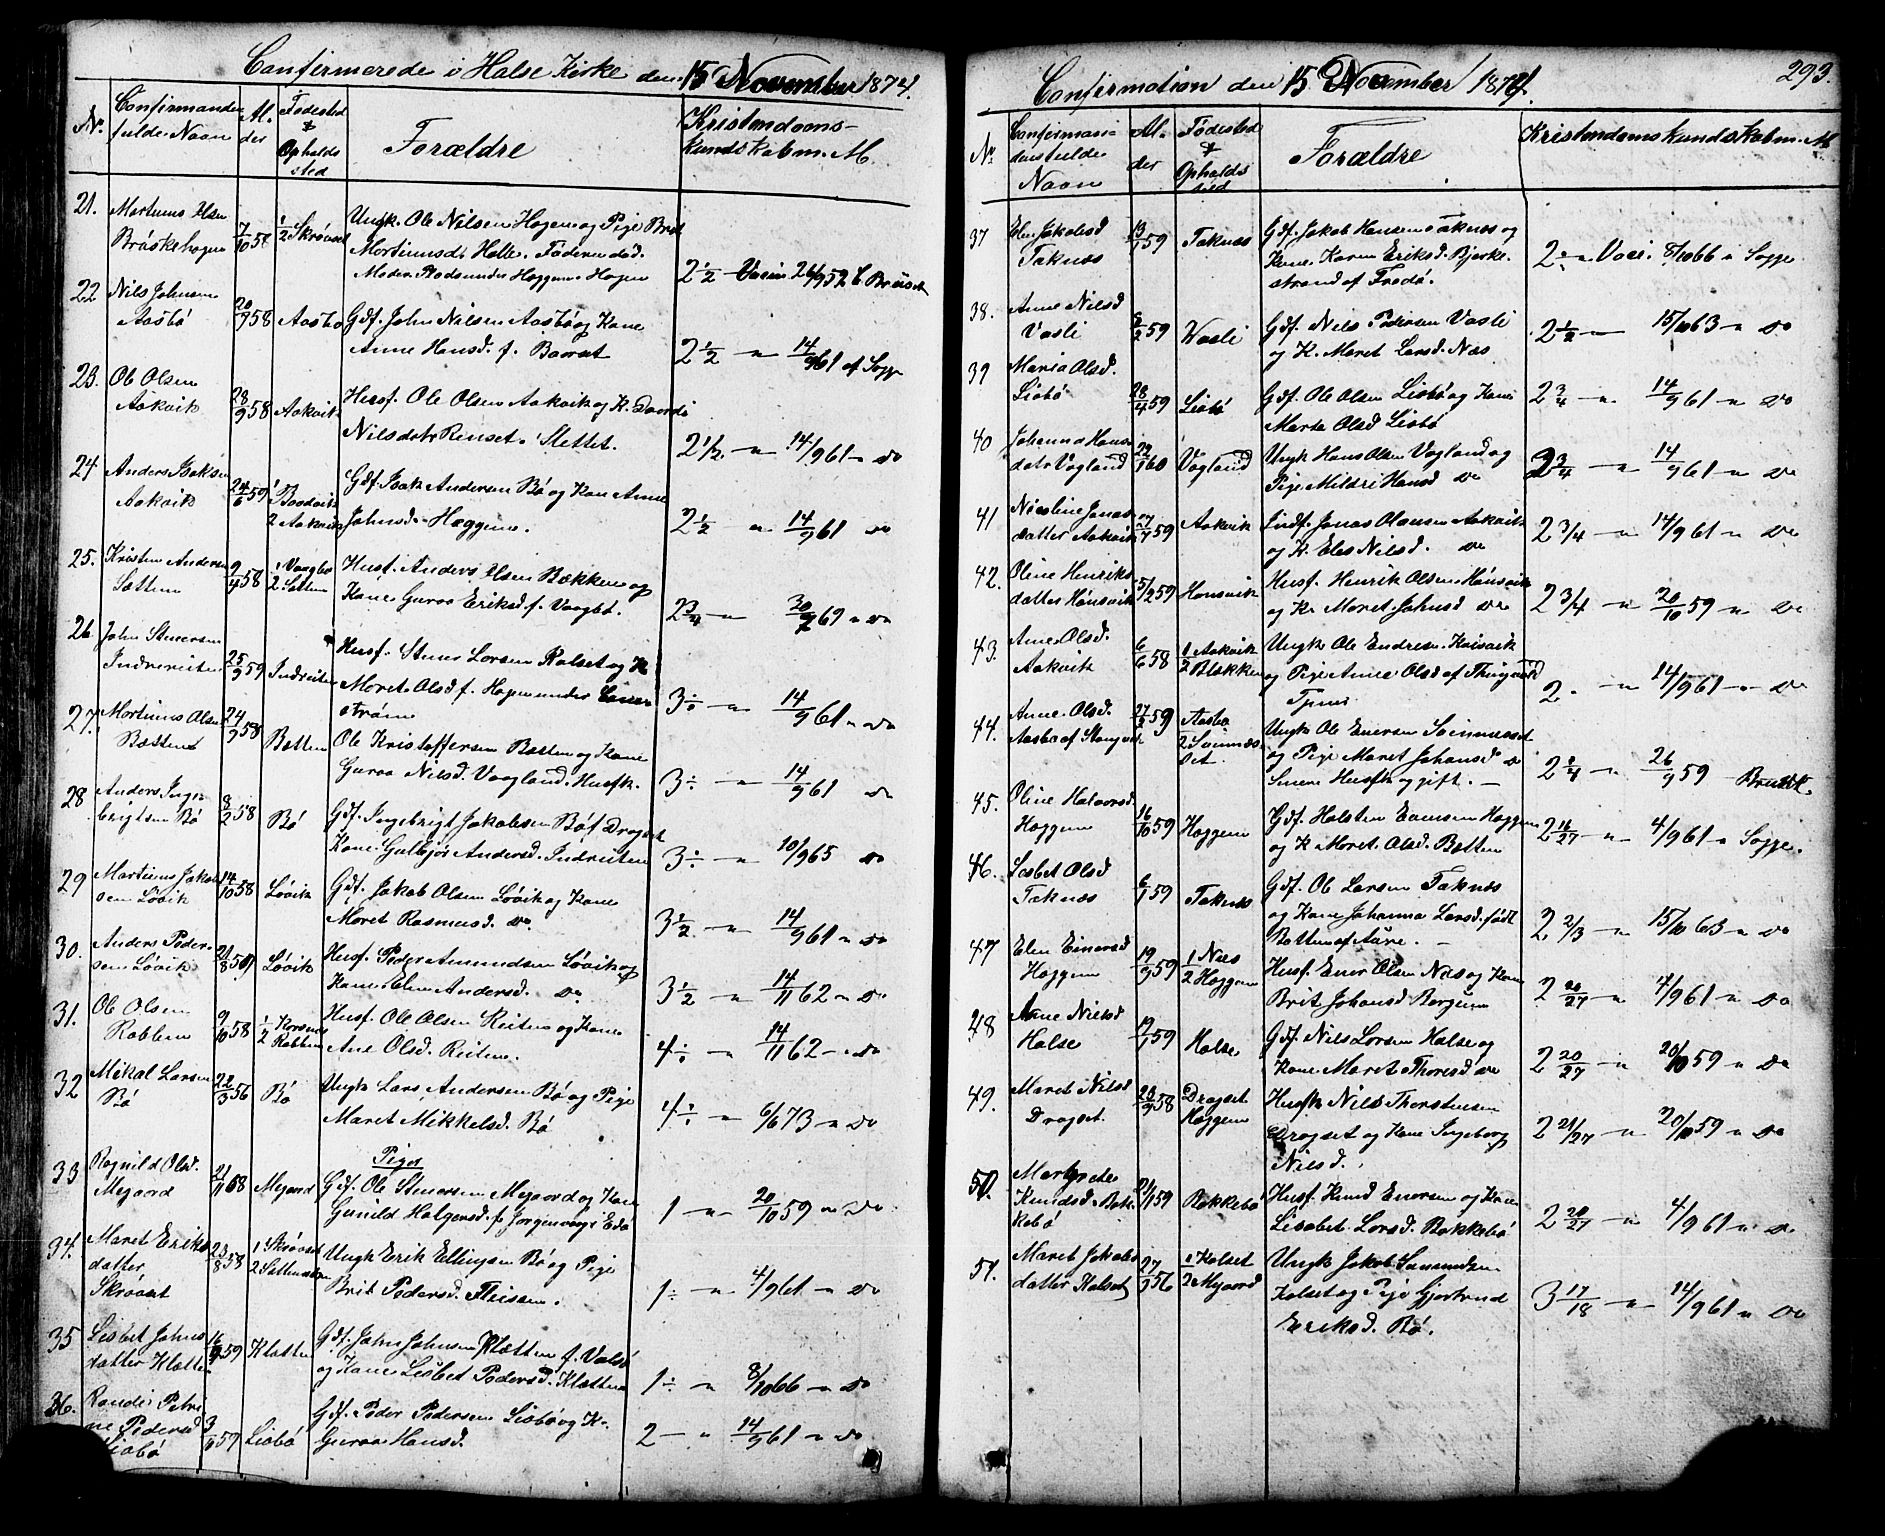 Confirmerede i Halse Kirke den 15 November 1874.
Nr.
Confirmandens
fulde Navn
Al-
der
Fødested
&
Opholds
sted
Forældre
Kristendoms-
kundskab m. M.
21. Martinus Olsen
7/10 58
1/2 Skrøvset
Ungk. Ole Nilsen Hagen og Pige Brit
Mortinusdt. Halle. Faderen død.
2 1/2 Vaccin 26/9 59 i Bruset
22 Nils Johnsen
Aasbø
20/9 58
Aasbø
Gdf. John Nilsen Aasbø og Kone
Anne Hansd. f.
2 1/2 — " 14/9 61 af Sogge
23. Ole Olsen
Aakvik
28/9 58
Aakvik
Husf. Ole Olsen Aakvik og K.
Nilsdatr Renset
2 1/2 — " 14/9 61 — do
24 Anders Isaksen
Aakvik
24/6 59
2 Aakvik
Gdf. Isak Andersen Bø og Kone Anne
Johnsd. Hæggem.
2 1/2 — " 14/9 61 do
25. Kristen Andersen
Sættem
9/4 58
1 Vaagbø
2 Sættem
Husf. Anders Olsen Bækken og
Kone Guroe Eriksd. f. Vaagbø.
2 3/4 — " 61 " do
26 John Stenersen
Indreiten
25/9 59
Indreiten
Husf. Stener Larsen Kalset og K.
Maret Olsd. f. Hagen under
strøm
3 ÷ — " 14/9 61 " do
27. Martinus Olsen
Bætten
24/9 58
Bætten
Ole Kristoffersen Bætten og Kone
Guroe Nilsd. Vaagland. Husfk.
3 ÷ — " 14/9 61 do
28 Anders Inge-
brigtsen Bø
8/2 58
Bø
Gdf. Ingebrigt Jakobsen Bø f. Drøgset
Kone Gulbjør Andersd. Indreiten
3 ÷ — " 10/9 65 do
29 Martinus Jakob
sen Løvik
14/10 58
Løvik
Gdf. Jakob Olsen Løvik og Kone
Maret Rasmusd. do
3 1/2 — " 14/9 61 — do
30. Anders Peder-
sen Løvik
21/8 59
Løvik
Husf. Peder Amundsen Løvik og
Kone Elen Andersd. do
3 1/2 — " 14/11 62 — do
31. Ole Olsen
Rablem
9/10 58
1 Korsnæs
2 Rablem
Husf. Ole Olsen Reiten og Kone
Ane Olsd. Reiten.
4 ÷ — " 14/11 62 — do
32 Mikal Larsen
Bø
22/3 56
Bø
Ungk. Lars Andersen Bø og Pige
Maret Mikkelsd. Bø
4 ÷ — " 6/6 73 — do
Piger
33 Ragnild Olsd.
Megaard
21/11 58
Megaard
Gdf. Ole Stenersen Megaard og Kone
Gunild Holgersd. f. Jørgenvaag i Edø
1 — " 20/10 59 — do
34. Maret Eriks
datter
Skrøvset
23/8 58
1 Skrøvset
2 Settemsdal
Ungk. Erik Ellingsen Bø og Pige
Brit Pedersd. Fleisen.
1 ÷ — " 4/9 61 — do
35 Lisbet Johns
datter Kletten
16/9 59
Kletten
Gdf. John Johnsen Kletten f. Valsø
og Kone Lisbet Pedersd. Kletten
1 ÷ — " 8/10 66 — do
36. Randi Petri
ne Pedersd
Lisbø
3/6 59
Lisbø
Gdf. Peder Pedersen Lisbø og K.
Guroe Hansd.
2 — " 14/9 61 — do
Confirmation den 15 November 1874.
293.
Nr.
Confirman-
dens fulde
Navn
Al-
der
Fødested
&
Opholds
sted
Forældre
Kristendomskundskab m. M
37 Elen Jakobsd
Taknæs
13/1 59
Taknæs
Gdf. Jakob Hansen Taknæs og
Kone Karen Eriksd. Bjerke-
strand af Fredø.
2 ÷ " Vacc. 8/10 66 i Sogge
38. Anne Nilsd
Vasli
8/2 59
Vasli
Gdf. Nils Pedersen Vasli
og K. Maret Larsd. Næs
2 1/2 — 15/10 63 — " do
39 Maria Olsd.
Lisbø
28/4 59
Lisbø
Gdf. Ole Olsen Lisbø og Kone
Marta Olsd Lisbø
2 3/4 — " 14/9 61 — " do
40 Johanna Hans
datr Vagland
22/1 60
Vagland
Ungk Hans Olsen Vagland og
Pige Mildri Hansd do
2 3/4 — " 14/9 61 — " do
41 Nicoline Jonas-
datter Aakvik
27/7 59
Aakvik
Indf. Jonas Olausen Aakvik
og K. Eles Nilsd. do
2 3/4 — " 14/9 61 — " do
42. Oline Henriks
datter Hønsvik
5/2 59
Hønsvik
Husf. Henrik Olsen Hønsvik
og K. Maret Johnsd do
2 3/4 — " 20/10 59 — " do
43. Anne Olsd.
Aakvik
6/6 58
1 Aakvik
2 Bækken
Ungk Ole Endresen Kvisvik
og Pige Anne Olsd af Thingvold
2. — " 14/9 61 — " do
44. Anne Olsd.
Aasbø af Stangvik
27/2 59
Aasbø
2 Svinnæs
set.
Ungk Ole Enersen Svinnesset
og Pige Maret Johansd do
Senere Husfk og gift. —
2 1/4 — " 26/9 59 — Bruset.
45. Oline Halvorsd
Hæggem
16/10 59
Hæggem
Gdf. Halsten Hæggem
og K. Maret Olsd. Bætten
2 16/27 — " 4/9 61 " Sogge.
46. Lisbet Olsd
Taknæs
6/1 59
Taknæs
Gdf. Ole Larsen Taknæs
og Kone Johanna Larsd. født
Botten af Aure. —
2 2/3 — " 15/10 63 — " do
47 Elen Einersd
Hæggem
19/9 59
1 Næs
2 Hæggem
Husf. Ener Olsen Næs og Kone
Brit Johansd Bergem
2 20/27 — " 4/9 61 — " do
48 Anne Nilsd
Halse
19/1 59
Halse
Gdf. Nils Larsen Halse og
Kone Maret Thoresd do
2 20/27 — " 20/10 59 — " do
49. Maret Nilsd
Drøgset.
28/9 58
Drøgset
Hæggem
Husfk Nils Thorstensen
Drøgset og Kone Ingeborg
Nilsd.
2 21/27 — " 20/10 59 — " do
50. Margrete
Knudsd. Bæk-
kebø
21/1 59
Bækkebø
Husf. Knud Enersen og Kone
Lisabet Larsd. Bækkebø
2 20/27 — " 4/9 61 — " do
51. Maret Jakobs
datter Kalset
27/9 56
1 Kalset
2 Megaard
Ungk Jakob
Kalset og Pige Gjertrud
Eriksd. Bø.
3 17/18 — " 14/9 61 " do